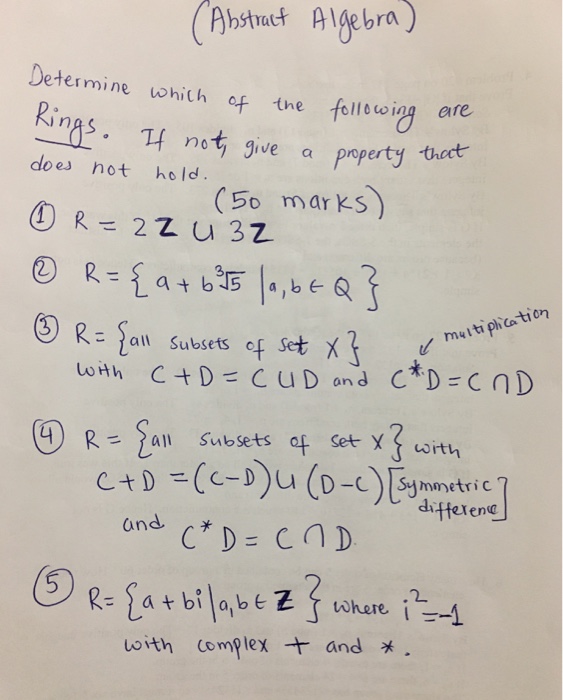 (Abstract Algebra)
Determine which of the following are
Rings. If not, give a property that
does not hold.
(50 marks)
① R = 2Z ∪ 3Z
② R = { a + b∛5 | a, b ∈ Q }
③ R = {all subsets of set X}
multiplication
with C + D = C ∪ D and C * D = C ∩ D
④ R = {all subsets of set X} with
C + D = (C - D) ∪ (D - C) [symmetric
difference]
and C * D = C ∩ D.
⑤ R = {a + bi | a, b ∈ Z} where i² = -1
with complex + and *.